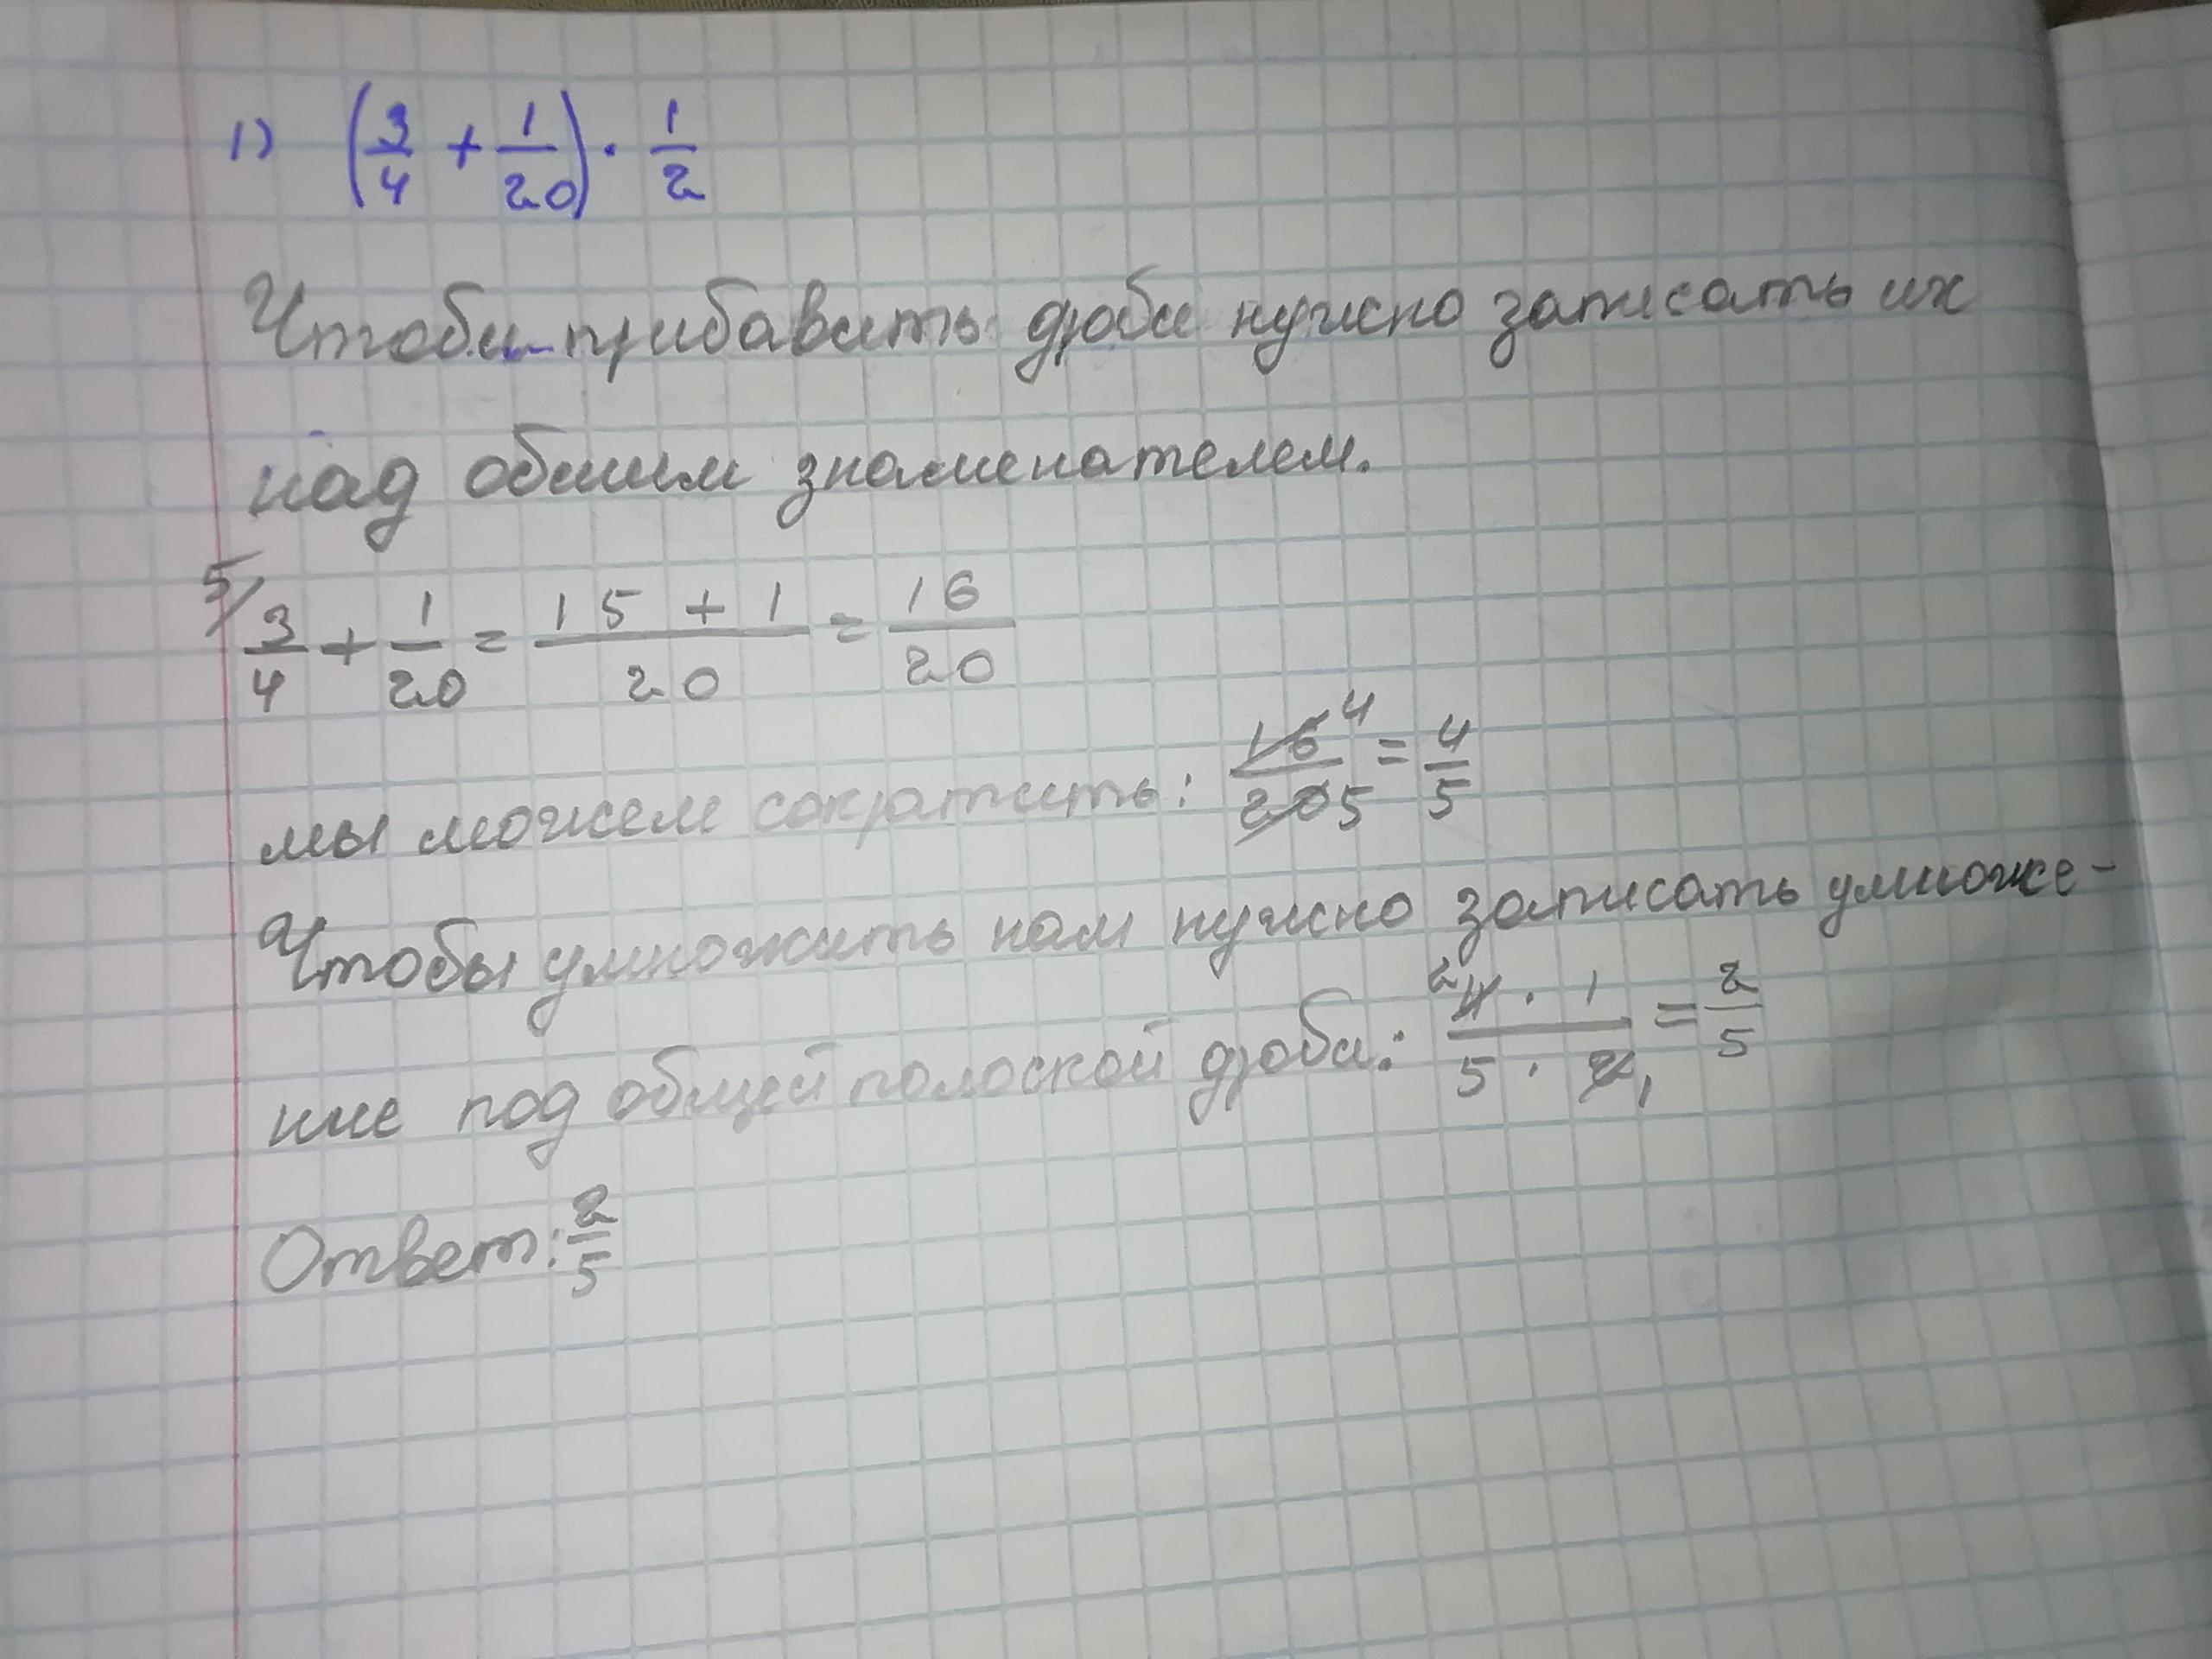 1) (3/4 + 1/20) · 1/2
Чтобы прибавить дроби нужно записать их
над общим знаменателем.
5/ 3/4 + 1/20 = 15 + 1/20 = 16/20
мы можем сократить: 16 4/20 5 = 4/5
Чтобы умножить нам нужно записать умноже-
ние под общей полоской дроби: 2 4 · 1/5 · 2 1 = 2/5
Ответ: 2/5